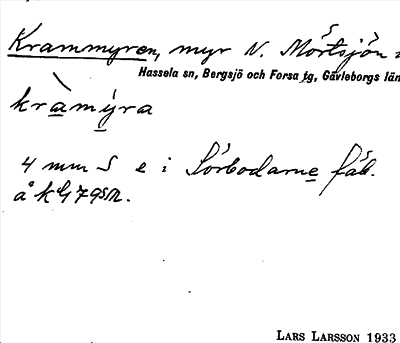 Krammyren, myr N. Mörtsjön
Hassela sn, Bergsjö och Forsa tg, Gävleborgs län
kràmýra
4 mm S e i Sörbodarne fäb.
å k
LARS LARSSON 1933